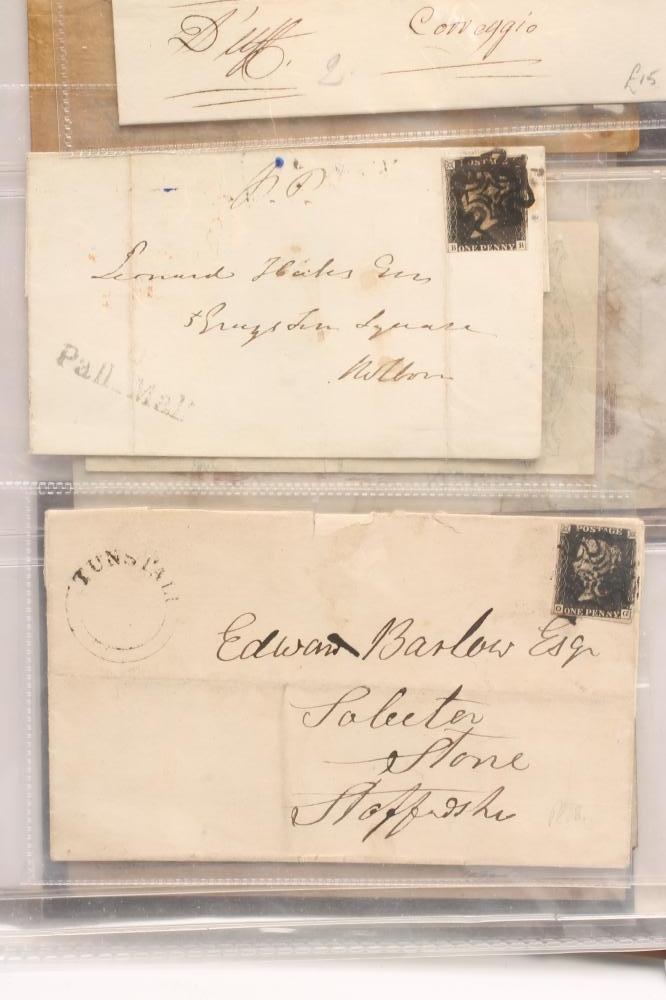 D'uff. Correggio
2.
£15
P.P.
POSTAGE
B ONE PENNY B
Leonard Hicks Esq
5 Grays Inn Square
Holborn
Pall Mall
TUNSTALL
POSTAGE
G ONE PENNY G
Edward Barlow Esqr
Soliciter
Stone
Staffordshe